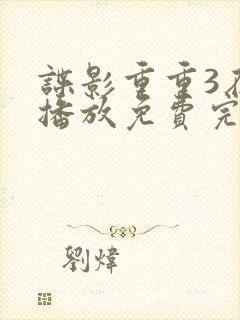 諜影重重3
播放免費完
劉煒